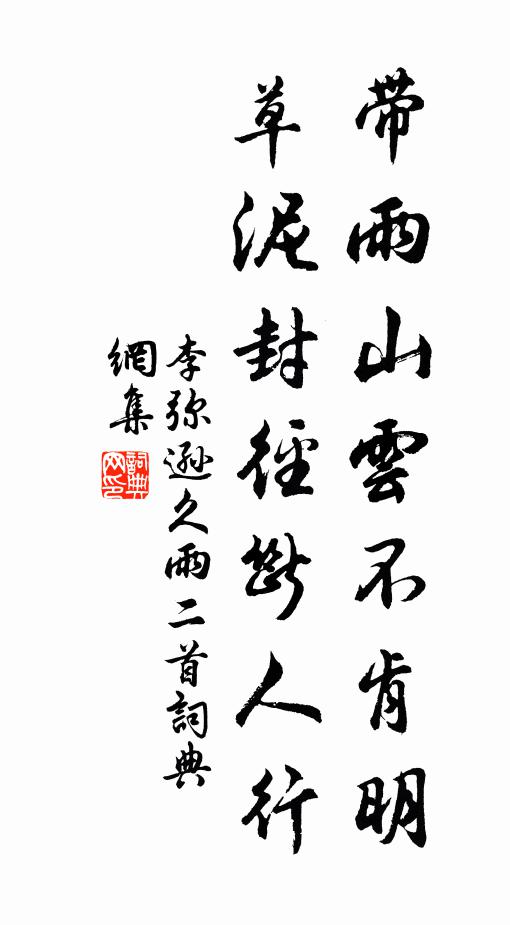 帶雨山雲不肯明
草泥封徑斷人行
李弥遜久雨二首詞典
網集
詞典
网印